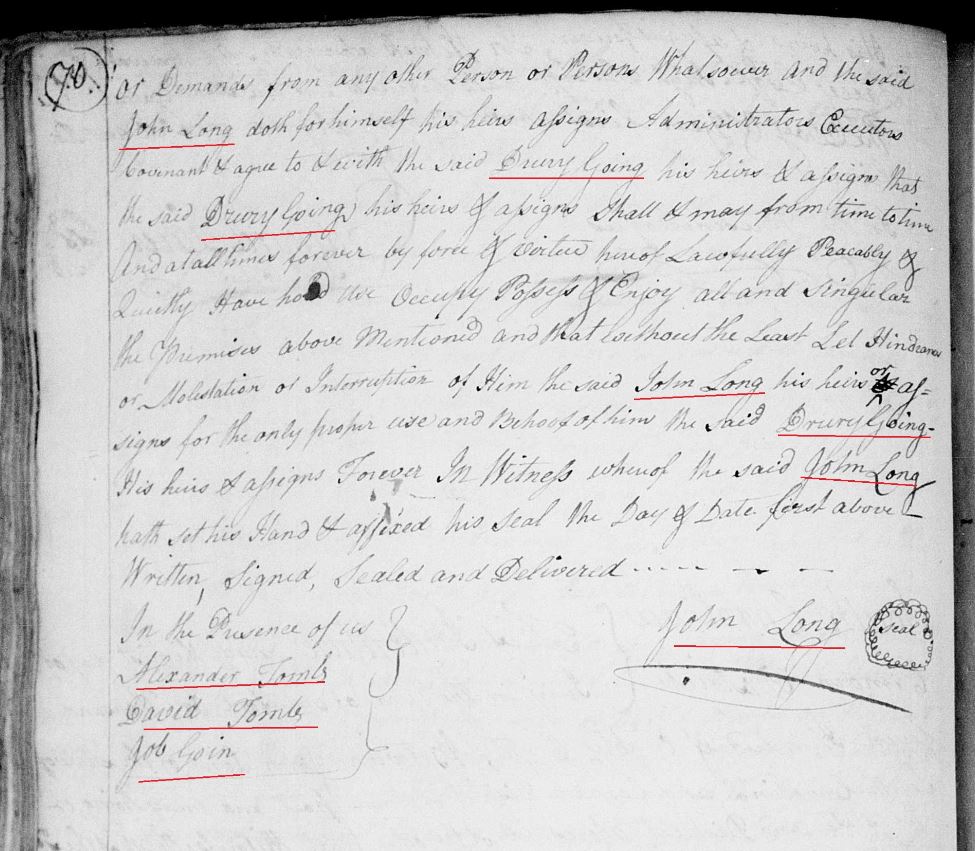 70
or Demands from any other Person or Persons Whatsoever And the said
John Long doth for himself his heirs assigns Administrators Executors
Covenant & agree to & with the said Drury Going his heirs & assigns that
the said Drury Going his heirs & assigns Shall & may from time to time
And at all times forever by force & Virtue hereof Lawfully Peacably &
Quietly Have hold use Occupy Possess & Enjoy all and Singular
the Premises above Mentioned and that without the Least Let Hindrance
or Molestation or Interruption of Him the said John Long his heirs or as=
signs for the only proper use and Behoof of him the said Drury Going-
His heirs & assigns Forever In Witness whereof the said John Long
hath set his Hand & affixed his Seal the Day & Date first above
Written, Signed, Sealed and Delivered
In the Presence of us
John Long
seal
Alexander Tomb
David Tomb
Job Goin